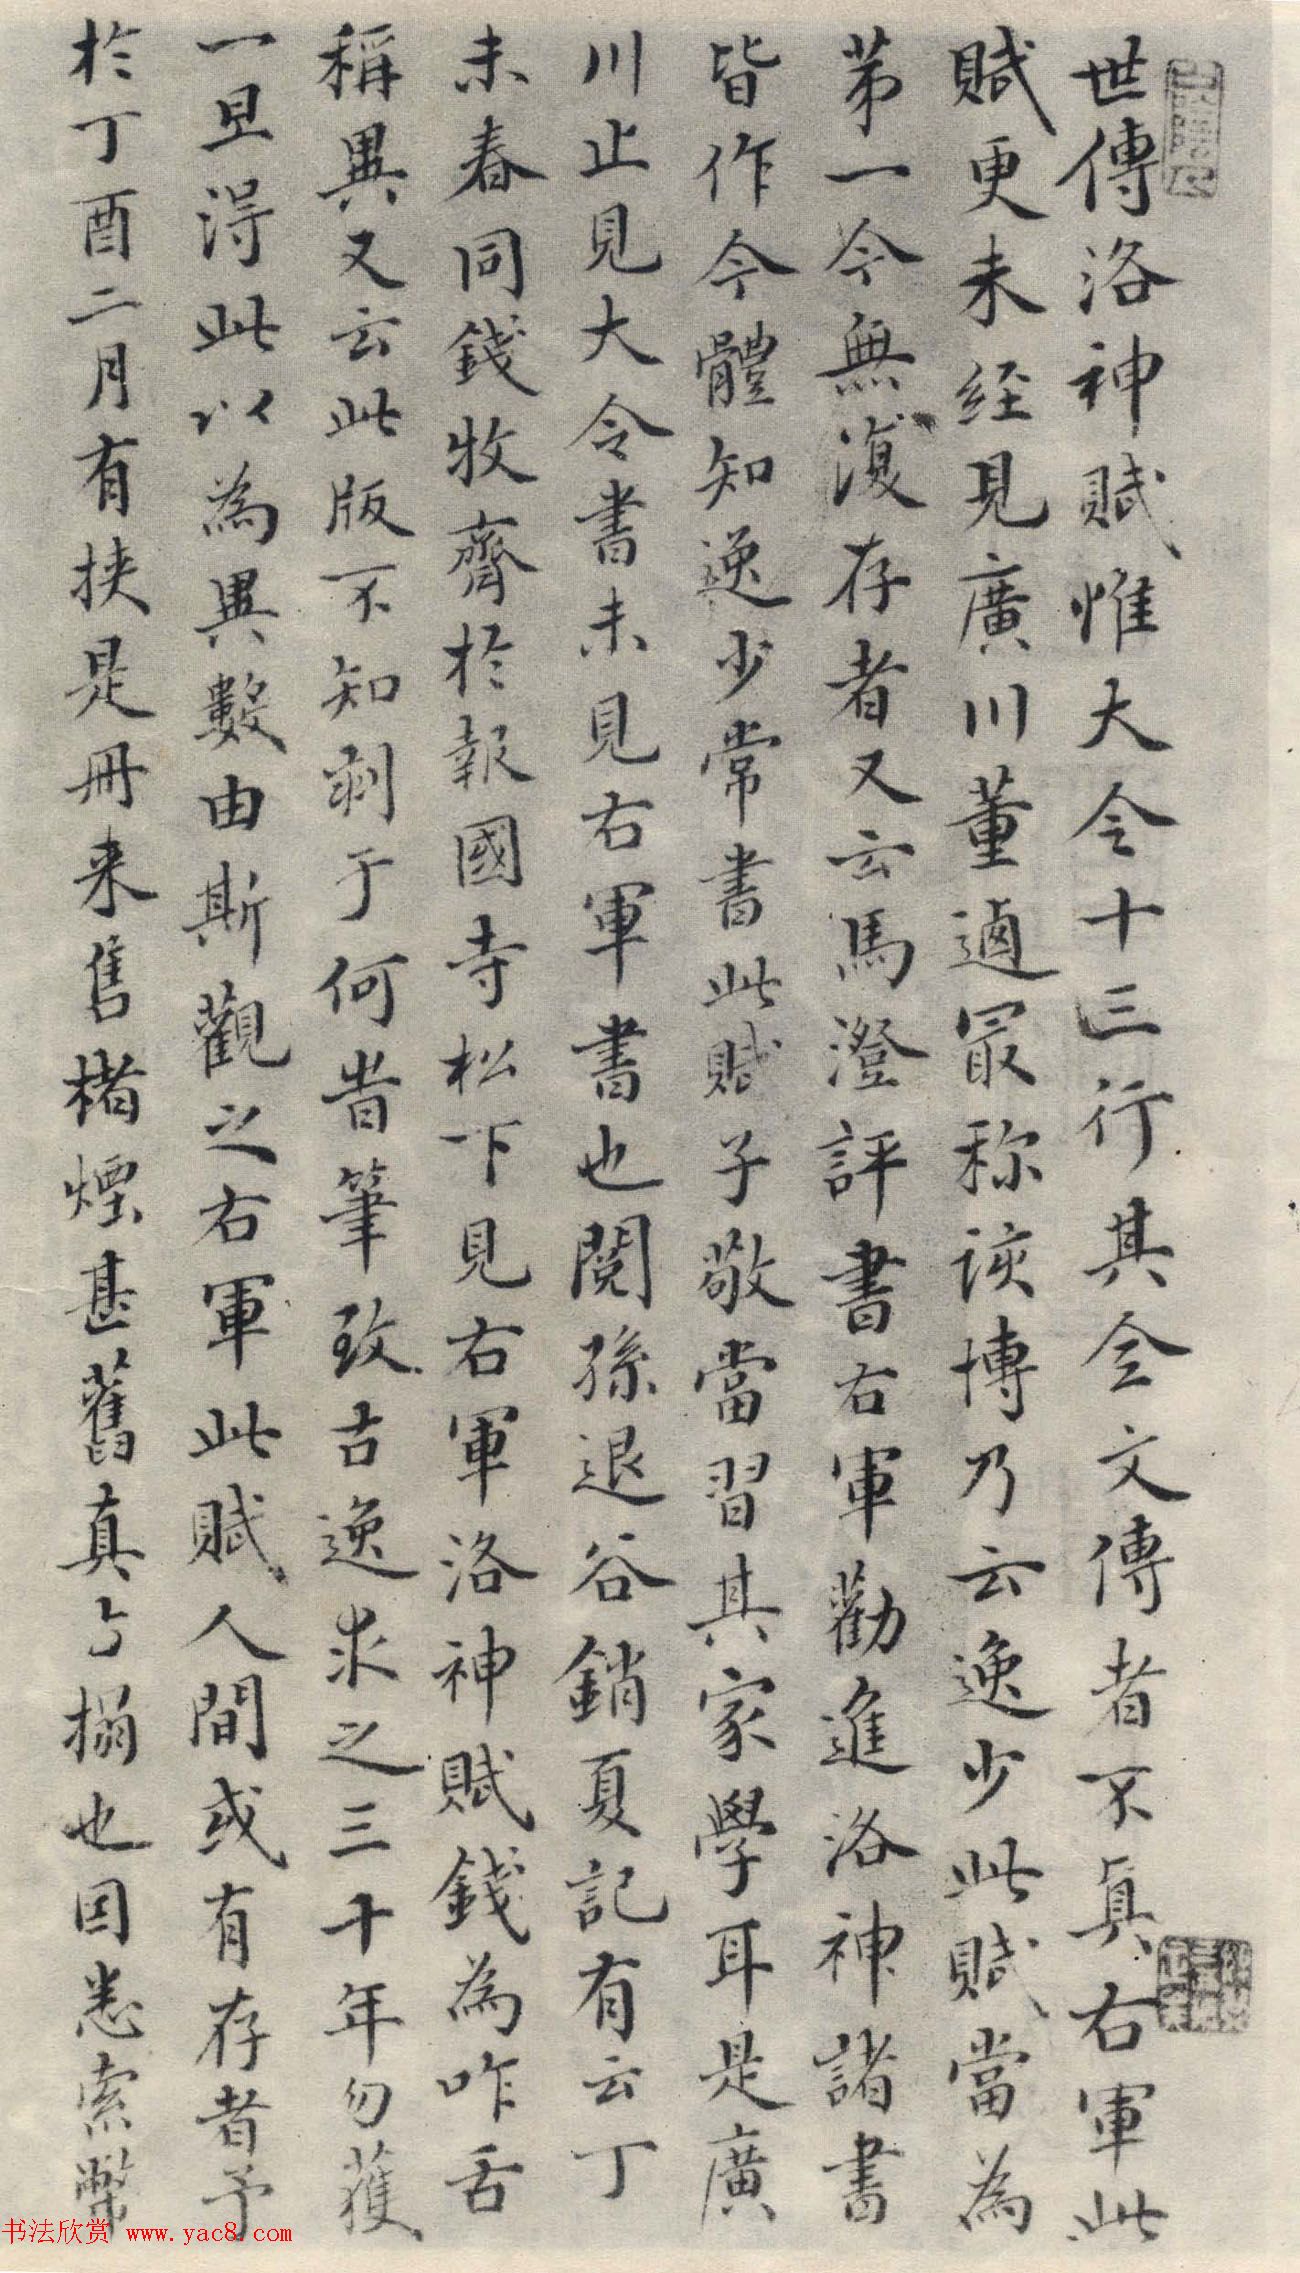 世傳洛神賦惟大令十三行其全文傳者不真右軍此
賦更未經見廣川董逌冣称該博乃云逸少此賦當為
苐一今無復存者又云馬澄評書右軍勸進洛神諸書
皆作今體知逸少常書此賦子敬當習其家學耳是廣
川止見大令書未見右軍書也閱孫退谷銷夏記有云丁
未春同錢牧齋於報國寺松下見右軍洛神賦錢為咋舌
稱異又云此版不知刻于何昔筆致古逸求之三十年勿獲
一旦淂此以為異數由斯觀之右軍此賦人間或有存者予
於丁酉二月有挾是冊来售楮煙甚舊真搨也因悉索幣
书法欣赏 www.yac8.com